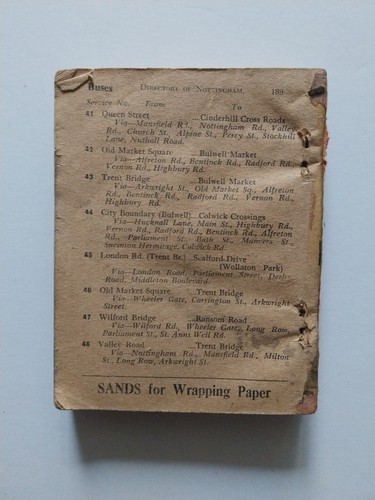 Buses Directory of Nottingham. 189
Service No. From To
41 Queen Street Cinderhill Cross Roads
Via—Mansfield Rd., Nottingham Rd., Valley
Rd., Church St., Alpine St., Percy St., Stockhill
Lane, Nuthall Road.
42 Old Market Square Bulwell Market
Via—Alfreton Rd., Bentinck Rd., Radford Rd.
Vernon Rd., Highbury Rd.
43 Trent Bridge Bulwell Market
Via—Arkwright St., Old Market Sq., Alfreton
Rd., Bentinck Rd., Radford Rd., Vernon Rd.,
Highbury Rd.
44 City Boundary (Bulwell) Colwick Crossings
Via—Hucknall Lane, Main St., Highbury Rd.,
Vernon Rd., Radford Rd., Bentinck Rd., Alfreton
Rd., Parliament St. Bath St., Manvers St.,
Sneinton Hermitage, Colwick Rd.
45 London Rd. (Trent Br.) Scalford Drive
(Wollaton Park)
Via—London Road, Parliament Street, Derby
Road, Middleton Boulevard.
46 Old Market Square Trent Bridge
Via—Wheeler Gate, Carrington St., Arkwright
Street.
47 Wilford Bridge Ransom Road
Via—Wilford Rd., Wheeler Gate, Long Row,
Parliament St., St. Anns Well Rd.
48 Valley Road Trent Bridge
Via—Nottingham Rd., Mansfield Rd., Milton
St., Long Row, Arkwright St.
SANDS for Wrapping Paper